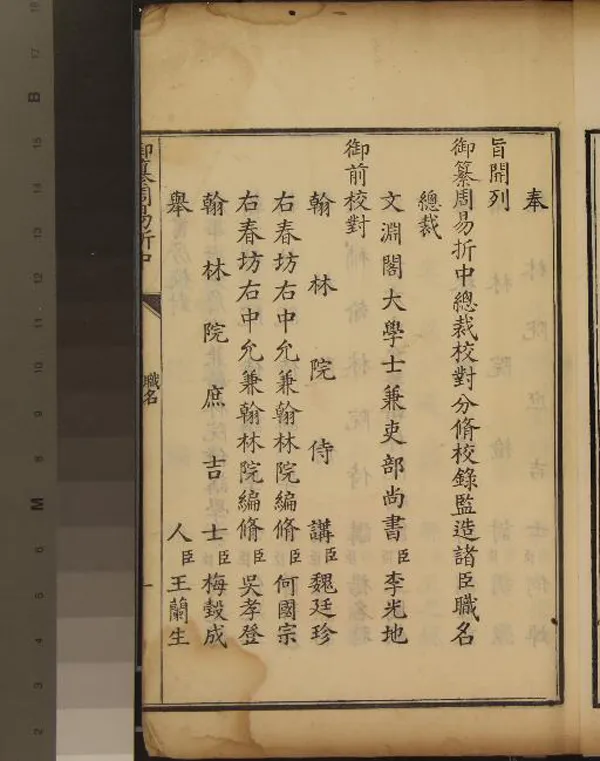 奉
旨開列
御纂周易折中總裁校對分脩校錄監造諸臣職名
總裁
文淵閣大學士兼吏部尚書臣李光地
御前校對
翰林院侍講臣魏廷珍
右春坊右中允兼翰林院編脩臣何國宗
右春坊右中允兼翰林院編脩臣吳孝登
翰林院庶吉士臣梅瑴成
舉人臣王蘭生
御纂周易折中
職名
一